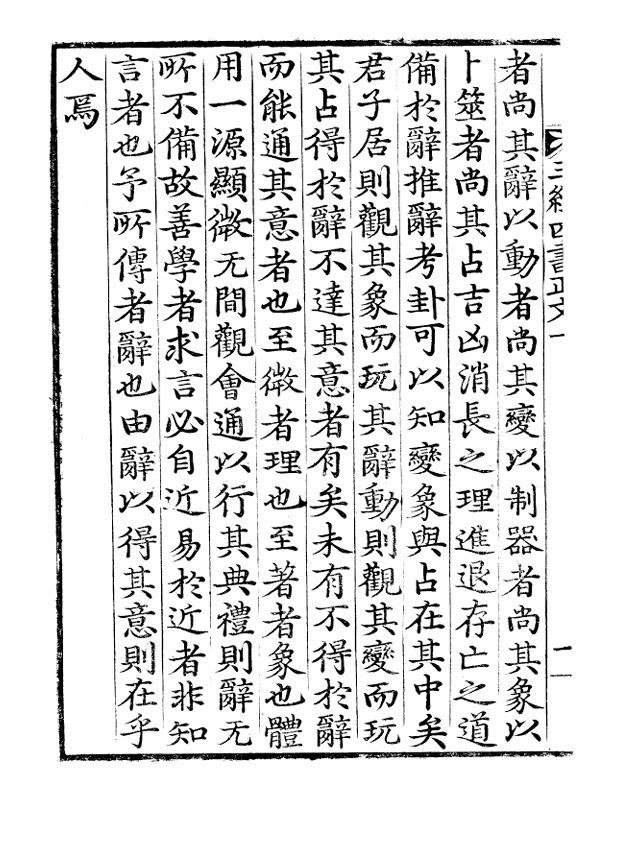 三經四書正文一
者尚其辭以動者尚其變以制器者尚其象以
卜筮者尚其占吉凶消長之理進退存亡之道
備於辭推辭考卦可以知變象與占在其中矣
君子居則觀其象而玩其辭動則觀其變而玩
其占得於辭不達其意者有矣未有不得於辭
而能通其意者也至微者理也至著者象也體
用一源顯微无間觀會通以行其典禮則辭无
所不備故善學者求言必自近易於近者非知
言者也予所傳者辭也由辭以得其意則在乎
人焉